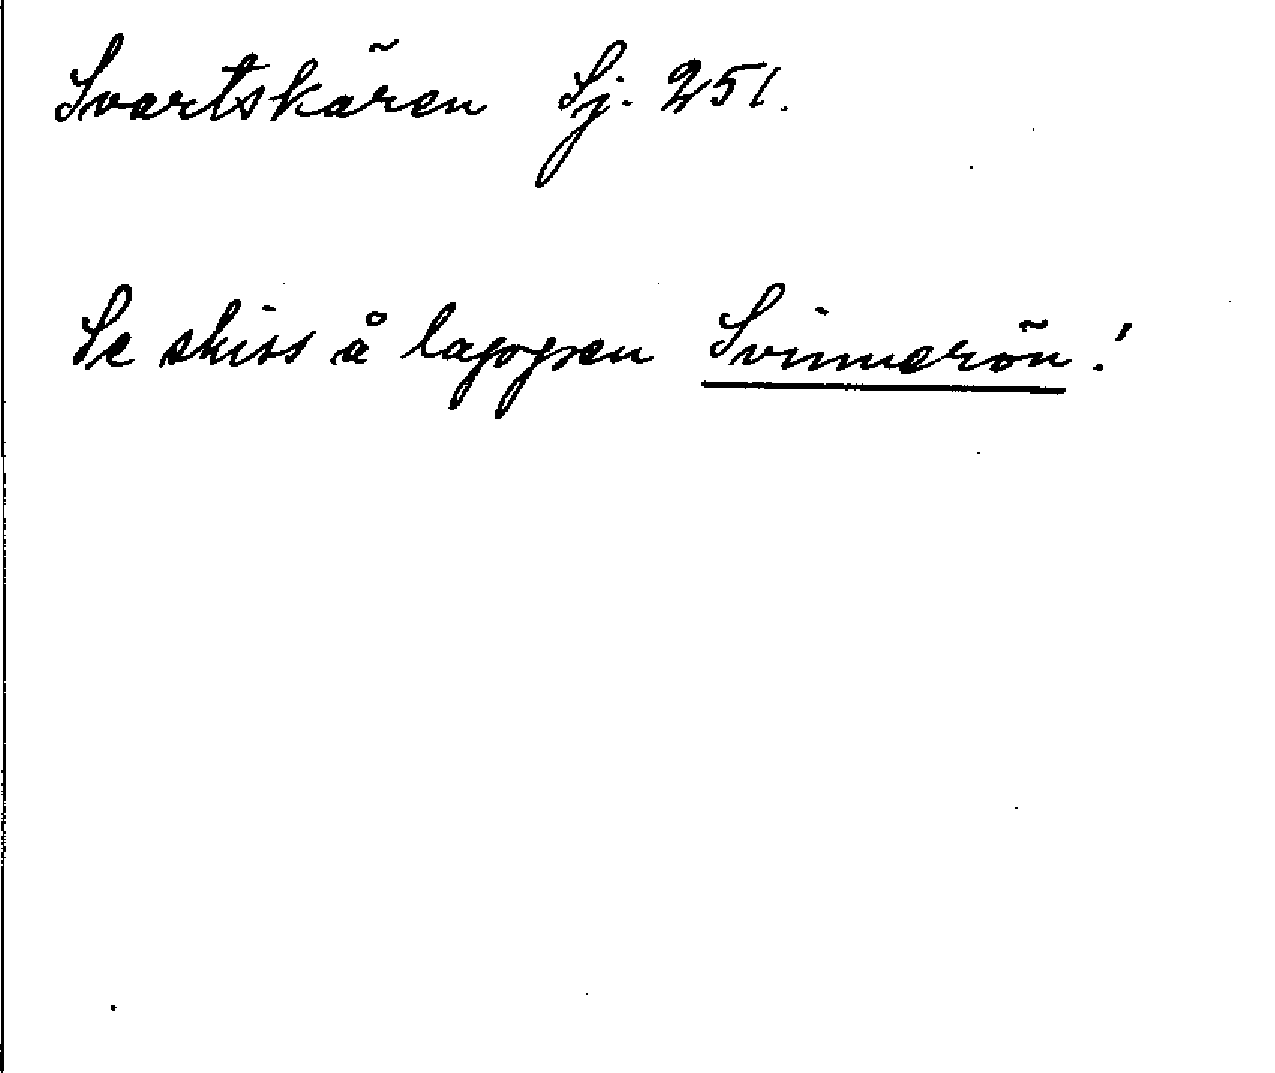 Svartskären Sj. 251.
Se skiss å lappen Svinnerön!